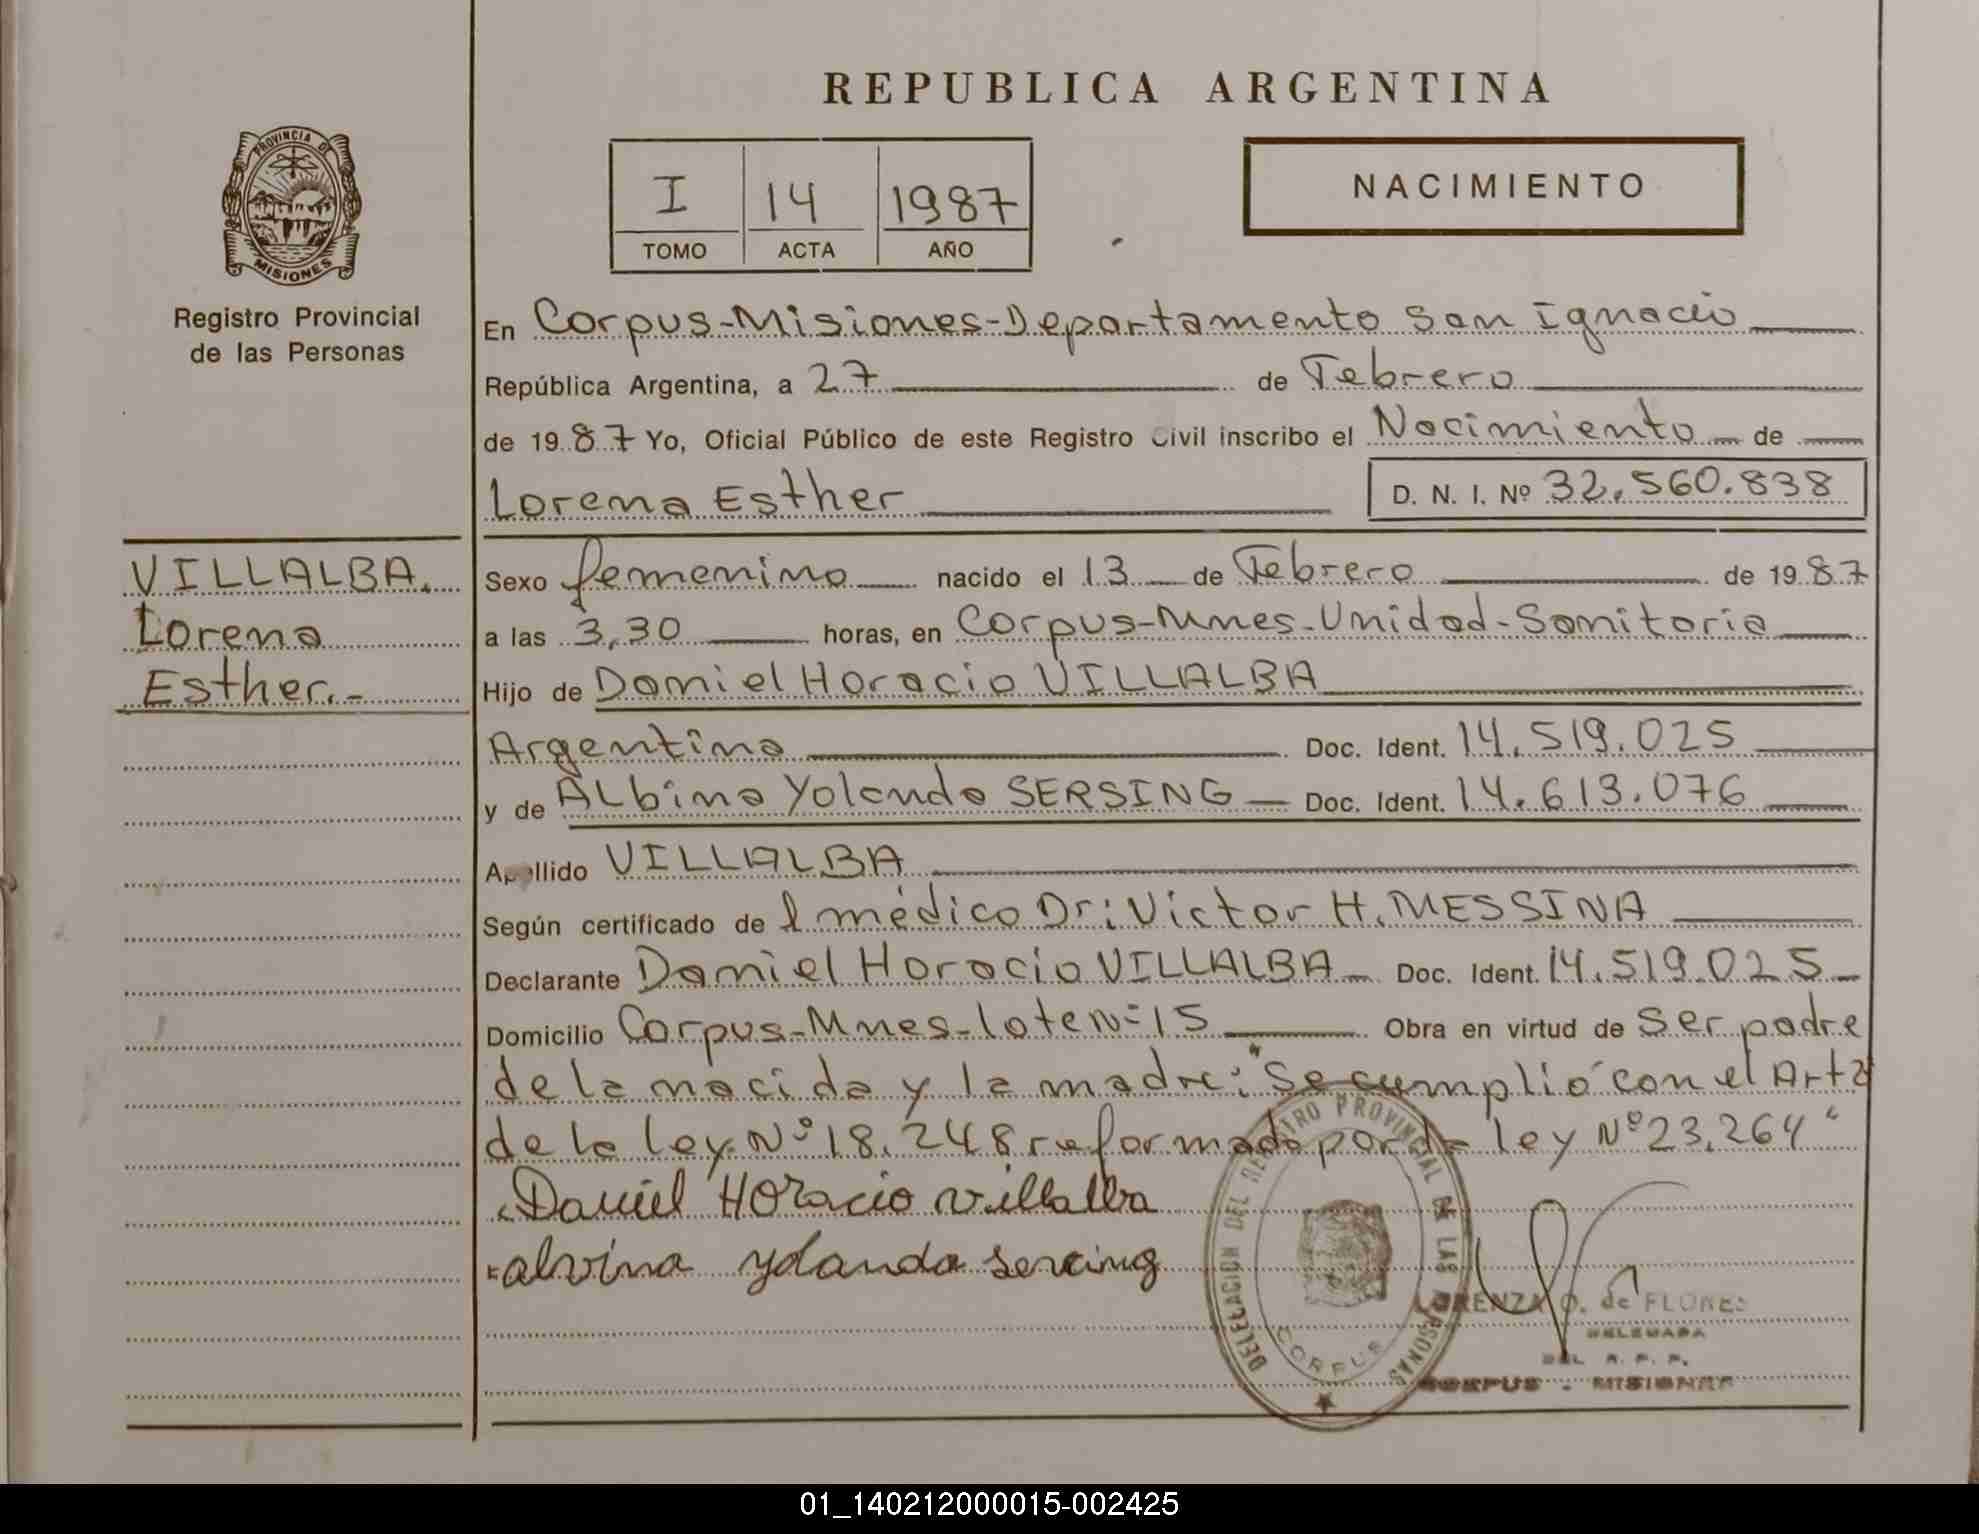 REPUBLICA ARGENTINA
PROVINCIA DE
MISIONES
Registro Provincial
de las Personas
I 14 1987
TOMO ACTA AÑO
NACIMIENTO
En Corpus-Misiones-Departamento San Ignacio
República Argentina, a 27 de Febrero
de 1987 Yo, Oficial Público de este Registro Civil inscribo el Nacimiento de
Lorena Esther D. N. I. Nº 32.560.838
VILLALBA.
Lorena
Esther.-
Sexo femenino nacido el 13 de Febrero de 1987
a las 3,30 horas, en Corpus-Mnes-Unidad-Sanitaria
Hijo de Daniel Horacio VILLALBA
Argentino Doc. Ident. 14.519.025
y de ALbina Yolanda SERSING Doc. Ident. 14.613.076
Apellido VILLALBA
Según certificado de l médico Dr: Victor H. MESSINA
Declarante Daniel Horacio VILLALBA Doc. Ident. 14.519.025
Domicilio Corpus-Mnes-lote N=15 Obra en virtud de ser padre
de la nacida y la madre: "Se cumplió con el Art 2
de la ley Nº 18.248 reformada por la ley Nº 23.264"
Daniel Horacio villalba
alvina yolanda sercing
DELEGACION DEL REGISTRO PROVINCIAL DE LAS PERSONAS
CORPUS
LORENZA O. de FLORES
DELEGADA
DEL R. P. P.
CORPUS - MISIONES
01_140212000015-002425